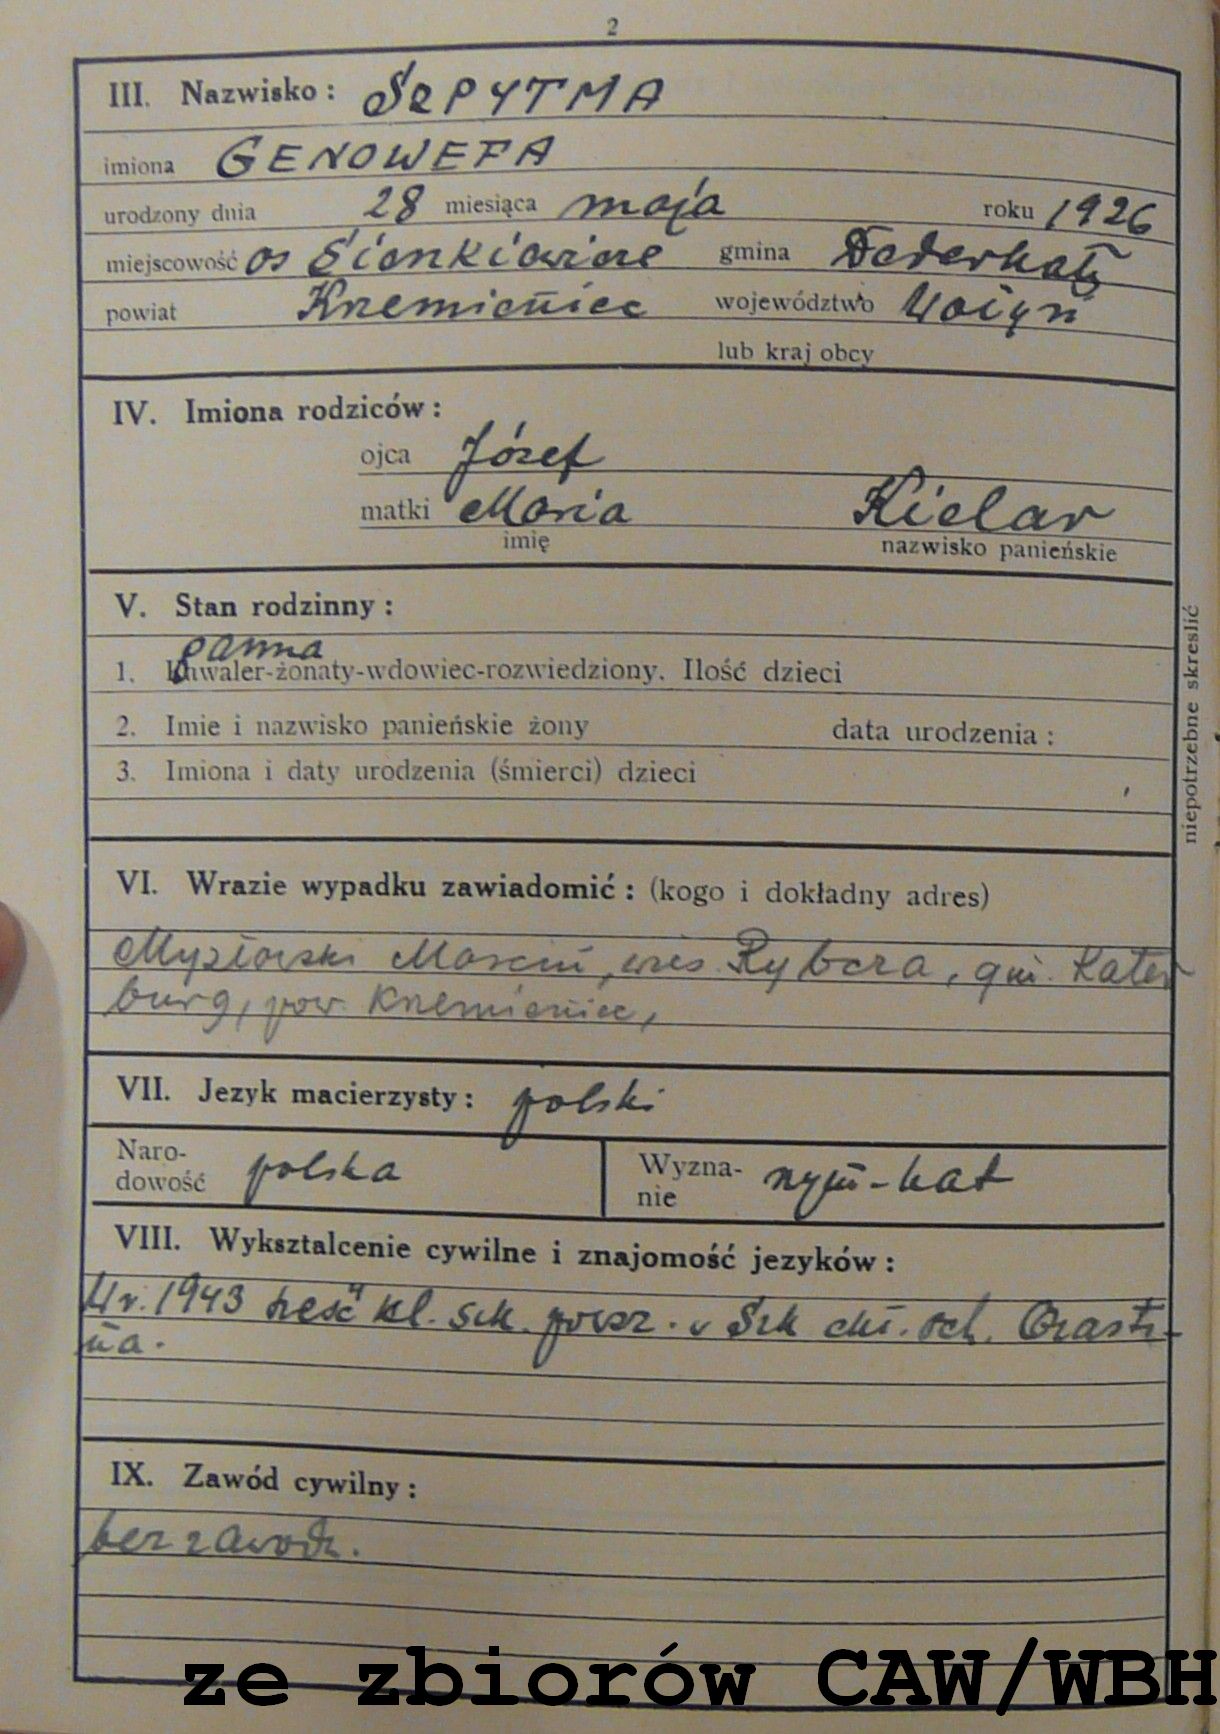 2
III. Nazwisko: ŚRPYTMA
imiona GENOWEFA
urodzony dnia 28 miesiąca maja roku 1926
miejscowość os Sienkiewicze gmina Dederkały
powiat Krzemieniec województwo Wołyń
lub kraj obcy
IV. Imiona rodziców:
ojca Józef
matki Maria Kielar
imię nazwisko panieńskie
V. Stan rodzinny:
panna
1. Kawaler-żonaty-wdowiec-rozwiedziony. Ilość dzieci
2. Imie i nazwisko panieńskie żony data urodzenia:
3. Imiona i daty urodzenia (śmierci) dzieci
niepotrzebne skreslić
VI. Wrazie wypadku zawiadomić: (kogo i dokładny adres)
Myzłowski Marcin, wieś. Rybcza, gm. Kater
burg, pow. Krzemieniec,
VII. Jezyk macierzysty: polski
Naro-
dowość polska
Wyzna-
nie rzym-kat
VIII. Wyksztalcenie cywilne i znajomość jezyków:
W r. 1943 sześć kl. szk. powsz. w Szk och.
na.
IX. Zawód cywilny:
bez zawodu.
ze zbiorów CAW/WBH